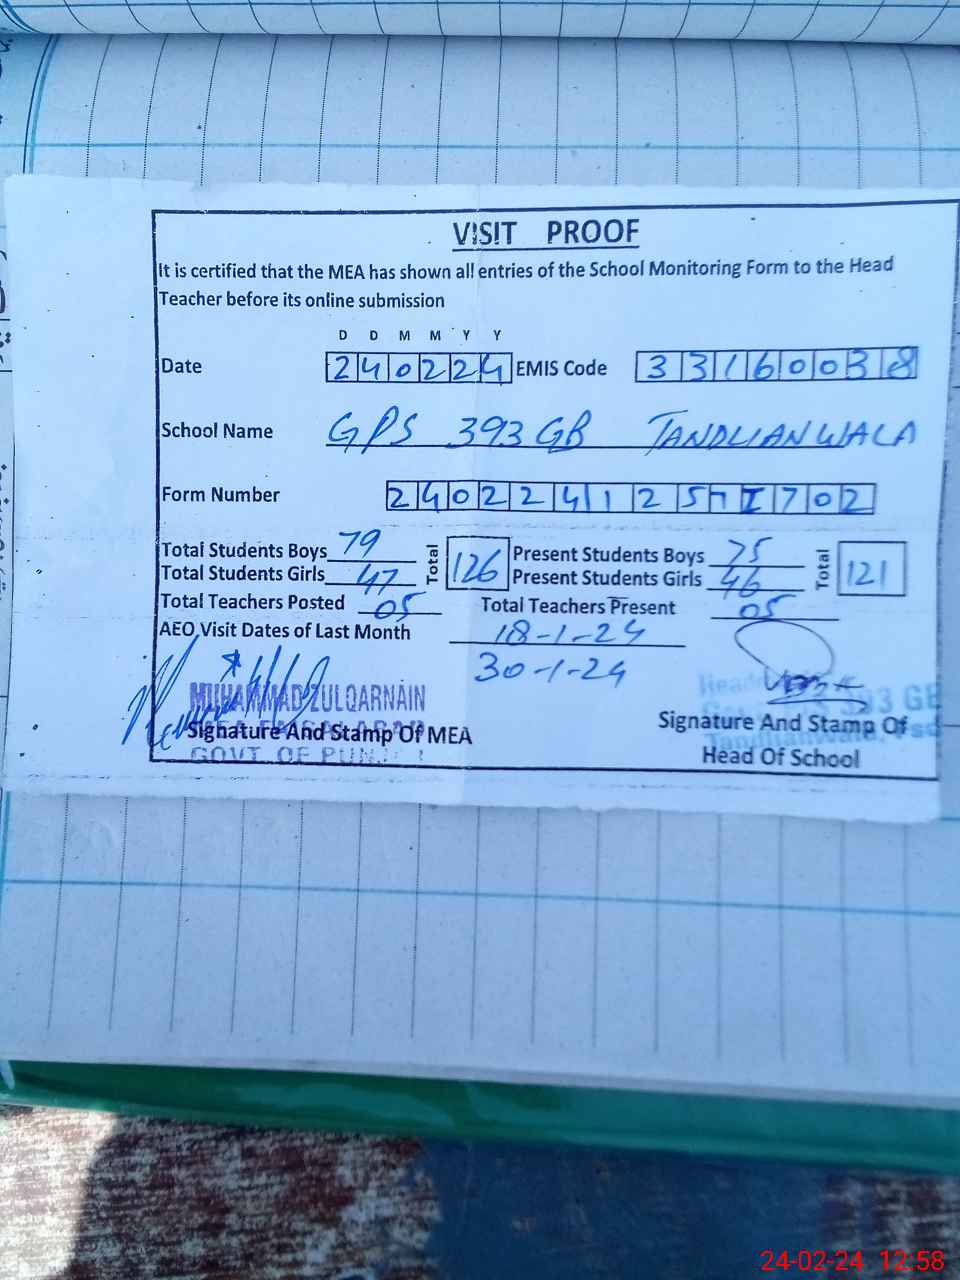 VISIT PROOF
It is certified that the MEA has shown all entries of the School Monitoring Form to the Head
Teacher before its online submission
D D M M Y Y
Date 240224 EMIS Code 33160038
School Name GPS 393 GB TANDLIANWALA
Form Number
Total Students Boys 79 Total 126 Present Students Boys 75 Total 121
Total Students Girls 47 Present Students Girls 46
Total Teachers Posted 05 Total Teachers Present 05
AEO Visit Dates of Last Month 18-1-24
30-1-24
MUHAMMAD ZULQARNAIN
Signature And Stamp Of MEA
GOVT. OF
Signature And Stamp Of
Head Of School
393 GB
24-02-24 12:58